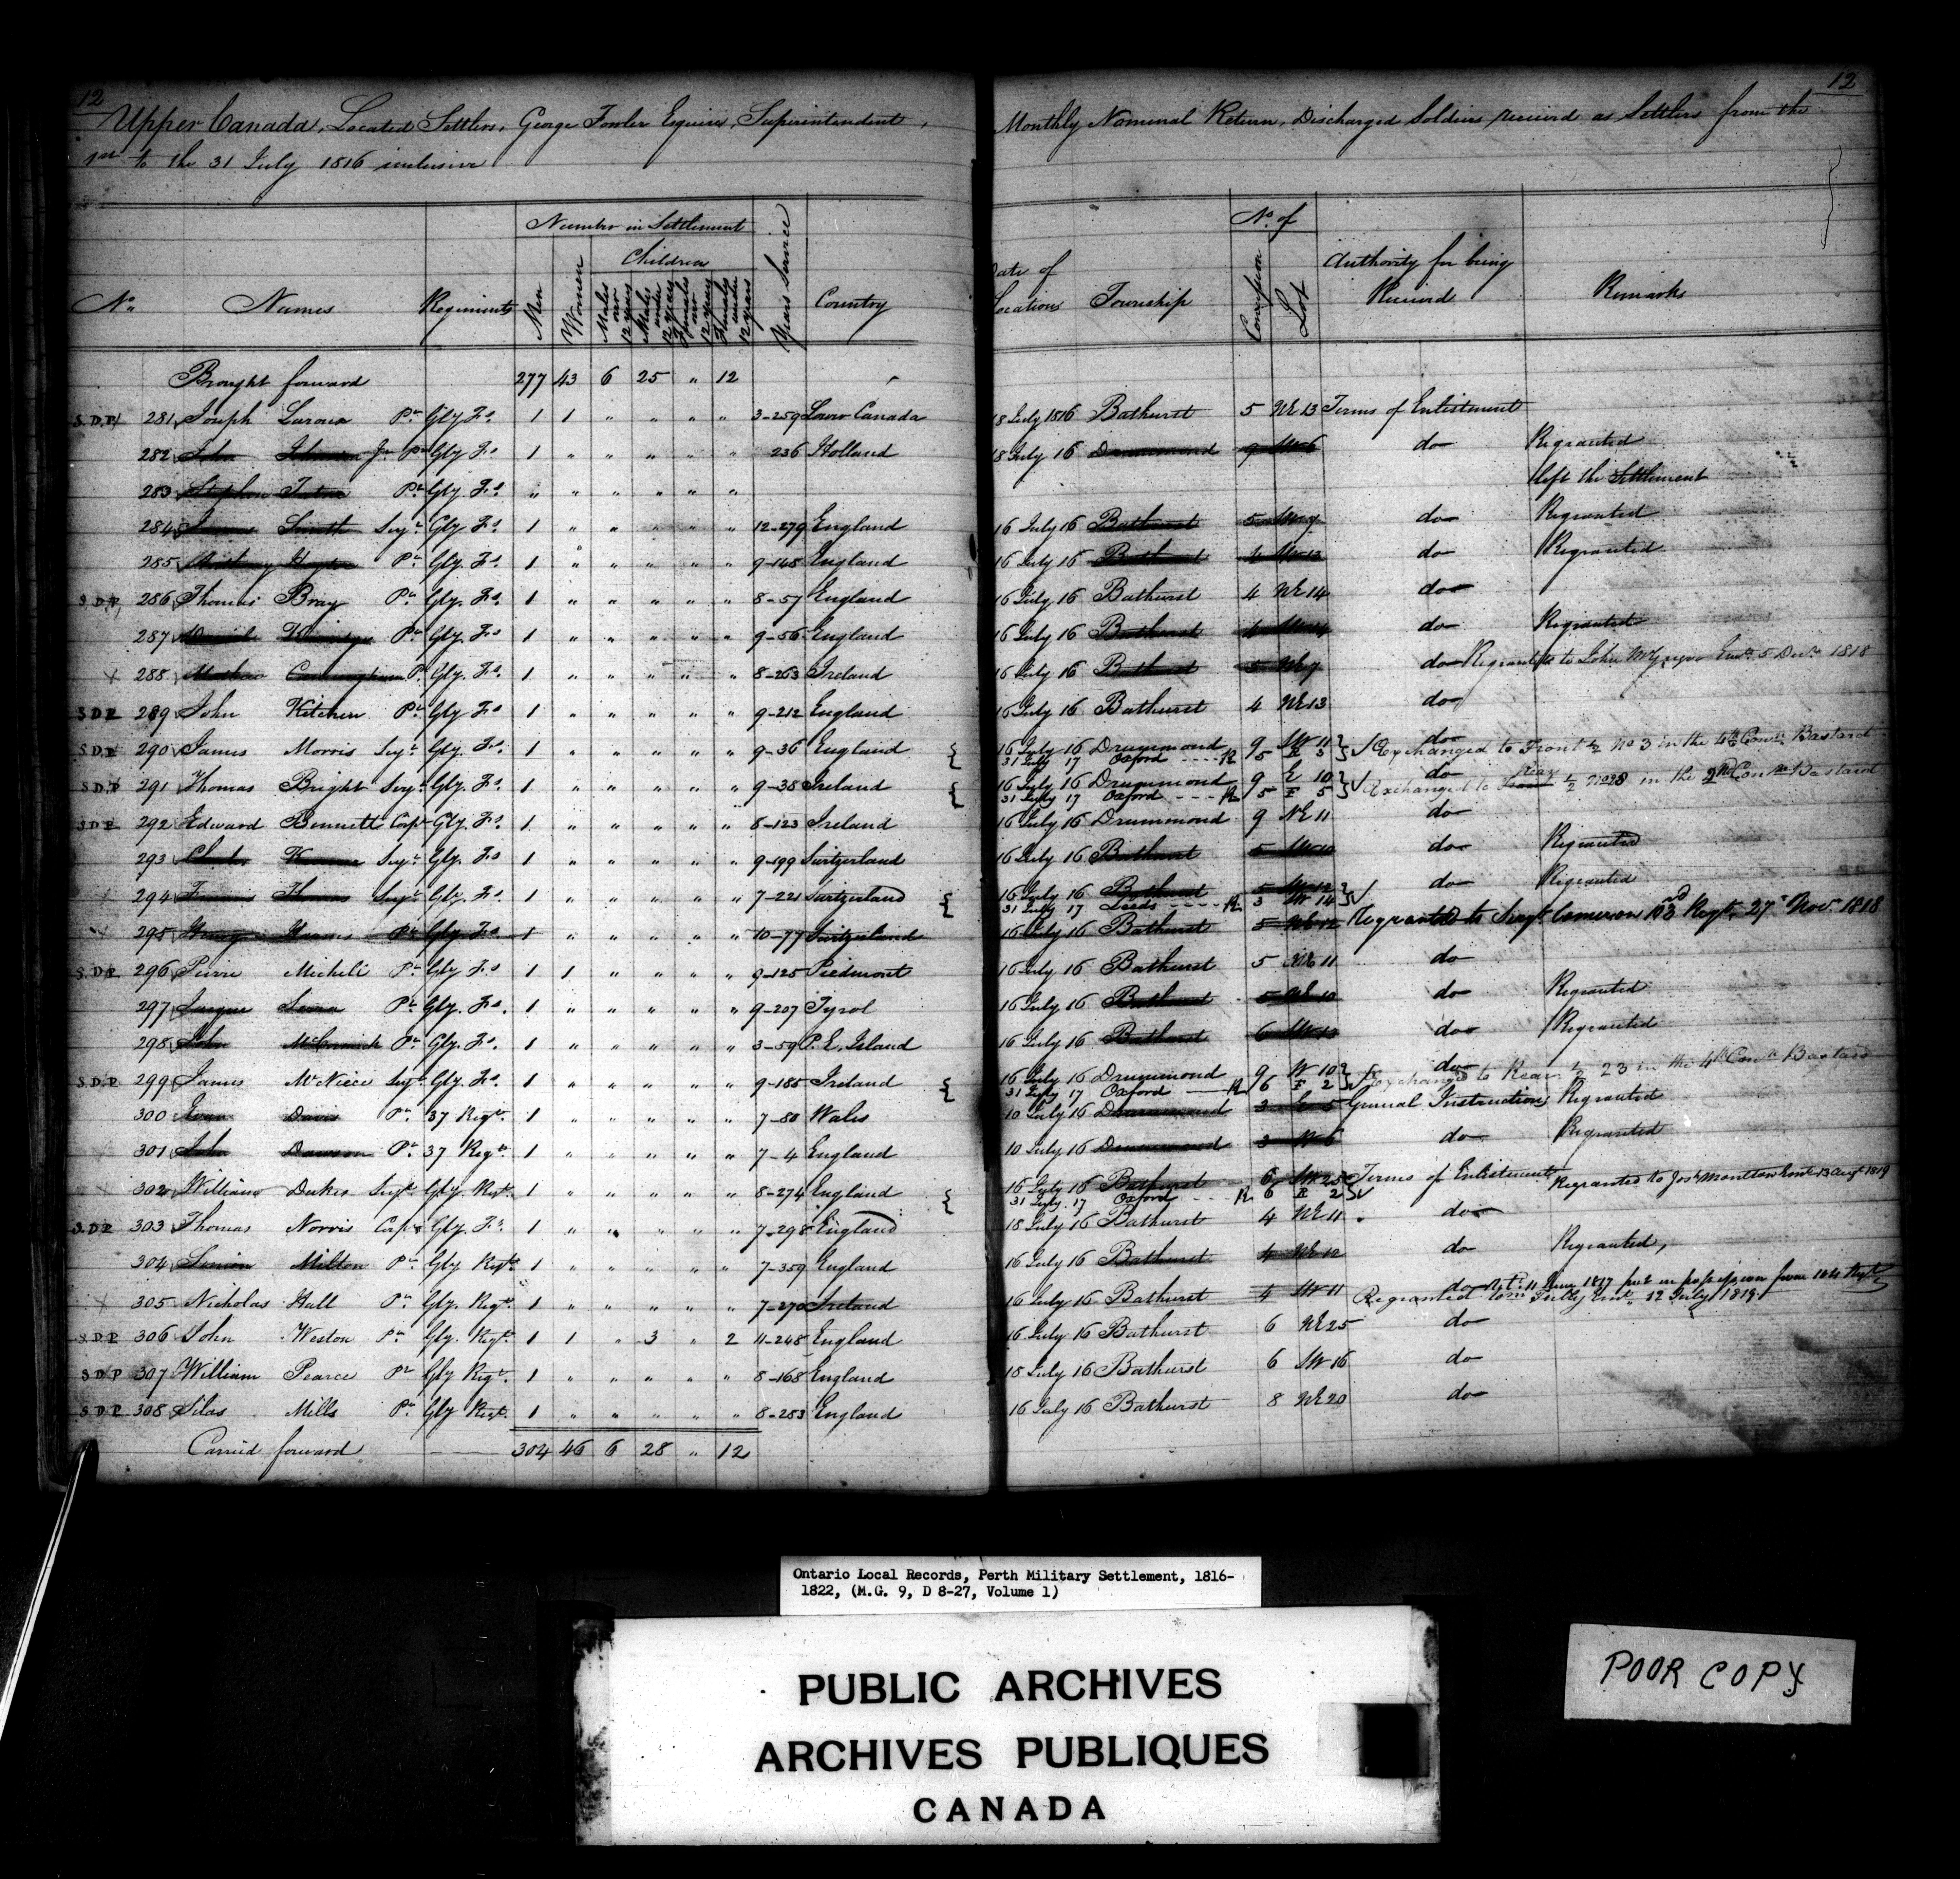 12
Upper Canada, Located Settlers, George Fowler Esquire, Superintendent,
1st to the 31 July 1816 inclusive
No. Names Regiments Number in Settlement Years Service Country
Men Women Children
Males over 12 years Males under 12 years Females over 12 years Females under 12 years
Brought forward 277 43 6 25 " 12
S.D.P. 281 Joseph Pte Gly Fs. 1 1 " " " " 3-259 Lower Canada
282 John Johnson Jr Pte Gly Fs. 1 " " " " " 236 Holland
283 Stephen Pte Gly Fs. " " " " " "
284 James Smith Serjt Gly Fs. 1 " " " " " 12-279 England
285 Anthony Pte Gly. Fs. 1 " " " " " 9-148 England
S.D.P. 286 Thomas Bray Pte Gly. Fs. 1 " " " " " 8-57 England
287 Pte Gly. Fs. 1 " " " " " 9-56 England
288 Cunningham Pte Gly. Fs. 1 " " " " " 8-263 Ireland
S.D.P. 289 John Kitchen Pte Gly Fs. 1 " " " " " 9-212 England
S.D.P. 290 James Morris Serjt Gly. Fs. 1 " " " " " 9-36 England
S.D.P. 291 Thomas Bright Serjt Gly. Fs. 1 " " " " " 9-38 Ireland
S.D.P. 292 Edward Bennett Corpl Gly. Fs. 1 " " " " " 8-123 Ireland
293 Charles Serjt Gly. Fs. 1 " " " " " 9-199 Switzerland
294 Francis Serjt Gly. Fs. 1 " " " " " 7-221 Switzerland
295 Pte Gly Fs. 1 " " " " " 10-77 Switzerland
S.D.P. 296 Pierre Micheli Pte Gly Fs. 1 1 " " " " 9-125 Piedmont
297 Pte Gly. Fs. 1 " " " " " 9-207 Tyrol
298 John McCormick Pte Gly. Fs. 1 " " " " " 3-59 P. E. Island
S.D.P. 299 James McNiece Serjt Gly. Fs. 1 " " " " " 9-185 Ireland
300 Evan Davis Pte 37 Regt. 1 " " " " " 7-80 Wales
301 John Dawson Pte 37 Regt. 1 " " " " " 7-4 England
302 William Dukes Serjt Gly Regt. 1 " " " " " 8-274 England
S.D.P. 303 Thomas Norris Corpl Gly. Fs. 1 " " " " " 7-298 England
304 Simion Milton Pte Gly Regt. 1 " " " " " 7-359 England
305 Nicholas Hall Pte Gly. Regt. 1 " " " " " 7-270 Ireland
S.D.P. 306 John Weston Pte Gly. Regt. 1 1 " 3 " 2 11-248 England
S.D.P. 307 William Pearce Pte Gly Regt. 1 " " " " " 8-168 England
S.D.P. 308 Silas Mills Pte Gly Regt. 1 " " " " " 8-253 England
Carried forward 304 46 6 28 " 12
12
Monthly Nominal Return, Discharged Soldiers received as Settlers from the
Date of Location Township No. of Concession Lot Authority for being Received Remarks
18 July 1816 Bathurst 5 NE 13 Terms of Enlistment
18 July 16 Drummond 9 SW 6 do Regranted
left the Settlement
16 July 16 Bathurst 5 SW 9 do Regranted
16 July 16 Bathurst 4 SW 13 do Regranted
16 July 16 Bathurst 4 NE 14 do
16 July 16 Bathurst 4 SW 14 do Regranted
16 July 16 Bathurst 5 NE 9 do Regranted to John McGregor Emt. 5 Decr 1818
16 July 16 Bathurst 4 NE 13 do
16 July 16 Drummond 9 SW 11 do
31 July 17 Oxford R 5 F 3 Exchanged to Front ½ No 3 in the 4th Conn. Bastard
16 July 16 Drummond 9 E 10 do
31 July 17 Oxford R 5 F 5 Exchanged to Front Rear ½ in the 2nd Con Bastard
16 July 16 Drummond 9 NE 11 do
16 July 16 Bathurst 5 SW 10 do Regranted
16 July 16 Bathurst 5 SW 12 do Regranted
31 July 17 Leeds R 3 W 14
16 July 16 Bathurst 5 NE 12 Regranted to Serjt Cameron 103rd Regt. 27 Novr 1818
16 July 16 Bathurst 5 NE 11 do
16 July 16 Bathurst 5 NE 10 do Regranted
16 July 16 Bathurst 6 SW 13 do Regranted
16 July 16 Drummond 9 W 10 do
31 July 17 Oxford R 6 F 2 Exchanged to Rear ½ 23 in the 4th Con Bastard
10 July 16 Drummond 3 E 5 General Instructions Regranted
10 July 16 Drummond 3 W 6 do Regranted
16 July 16 Bathurst 6 SW 25 Terms of Enlistment Regranted to Josh Moulton Emt 13 Augt 1819
31 July 17 Oxford R 6 R 2
18 July 16 Bathurst 4 NE 11 do
16 July 16 Bathurst 4 NE 12 do Regranted,
16 July 16 Bathurst 4 SW 11 do 1817 put in possession from 104 Regt
Regranted to Wm Emt. 12 July 1819
16 July 16 Bathurst 6 NE 25 do
18 July 16 Bathurst 6 SW 16 do
16 July 16 Bathurst 8 NE 20 do
Ontario Local Records, Perth Military Settlement, 1816-
1822, (M.G. 9, D 8-27, Volume 1)
PUBLIC ARCHIVES
ARCHIVES PUBLIQUES
CANADA
POOR COPY